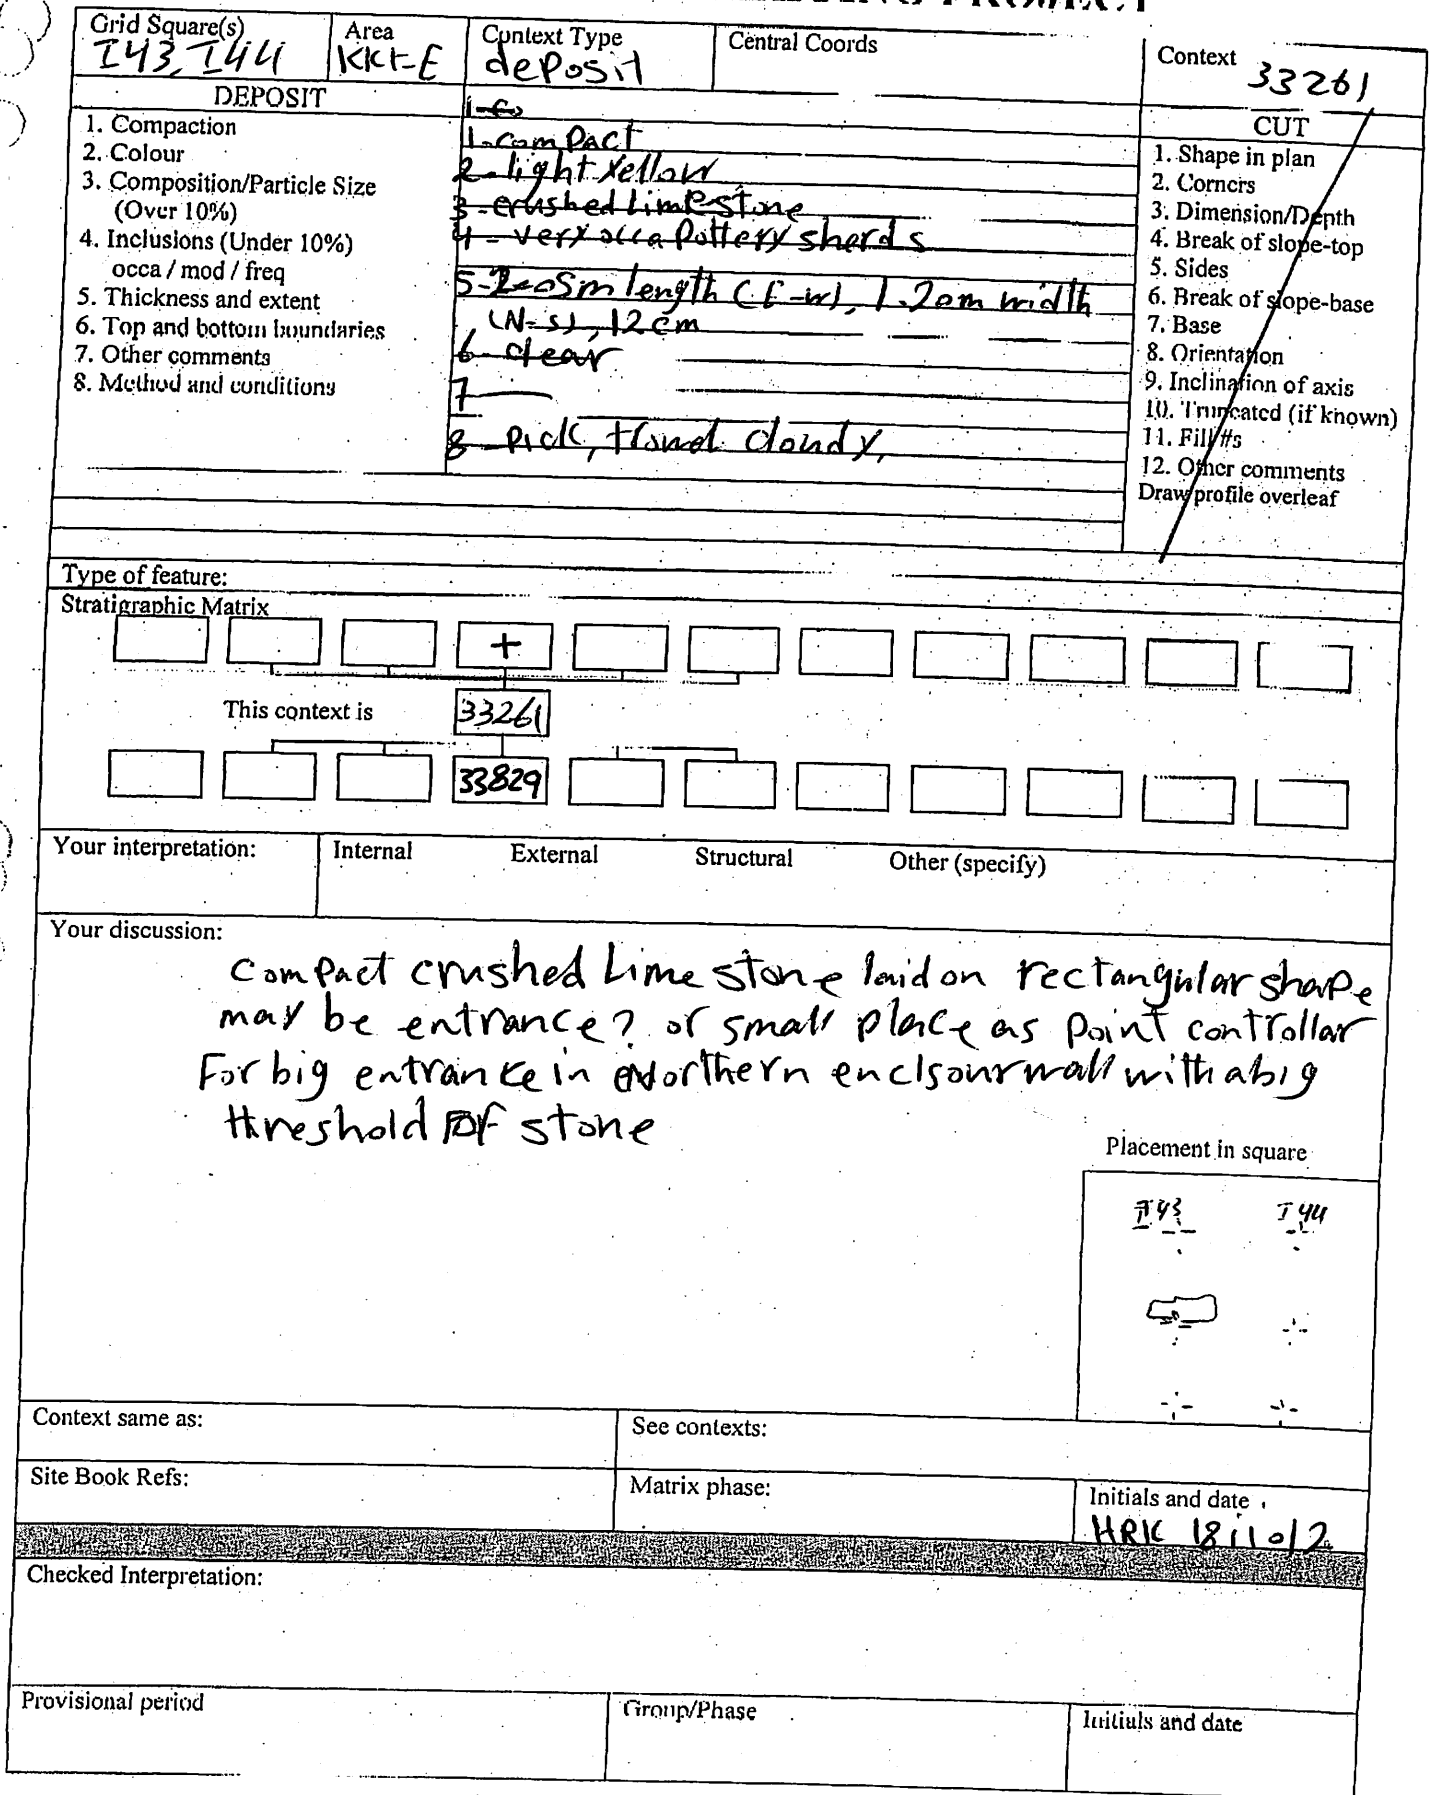 PROJECT
Grid Square(s) I43, I44
Area KKT-E
Context Type deposit
Central Coords
Context 33261
DEPOSIT
1. Compaction
2. Colour
3. Composition/Particle Size
(Over 10%)
4. Inclusions (Under 10%)
occa / mod / freq
5. Thickness and extent
6. Top and bottom boundaries
7. Other comments
8. Method and conditions
1-co
1-comPact
2-light Yellow
3-crushed Limestone
4-very occa Pottery sherds
5-2.05m length (E-W), 1.20m width
(N-S), 12cm
6-clear
7
8-Pick, trowel cloudy,
CUT
1. Shape in plan
2. Corners
3. Dimension/Depth
4. Break of slope-top
5. Sides
6. Break of slope-base
7. Base
8. Orientation
9. Inclination of axis
10. Truncated (if known)
11. Fill #s
12. Other comments
Draw profile overleaf
Type of feature:
Stratigraphic Matrix
+
This context is 33261
33829
Your interpretation: Internal External Structural Other (specify)
Your discussion:
comPact crushed Lime stone laid on rectangular shape
may be entrance? or small place as point controllar
For big entrance in Northern enclsour wall with a big
threshold OF stone
Placement in square
I43 I44
Context same as:
See contexts:
Site Book Refs:
Matrix phase:
Initials and date
HRK 18i1012
Checked Interpretation:
Provisional period
Group/Phase
Initials and date